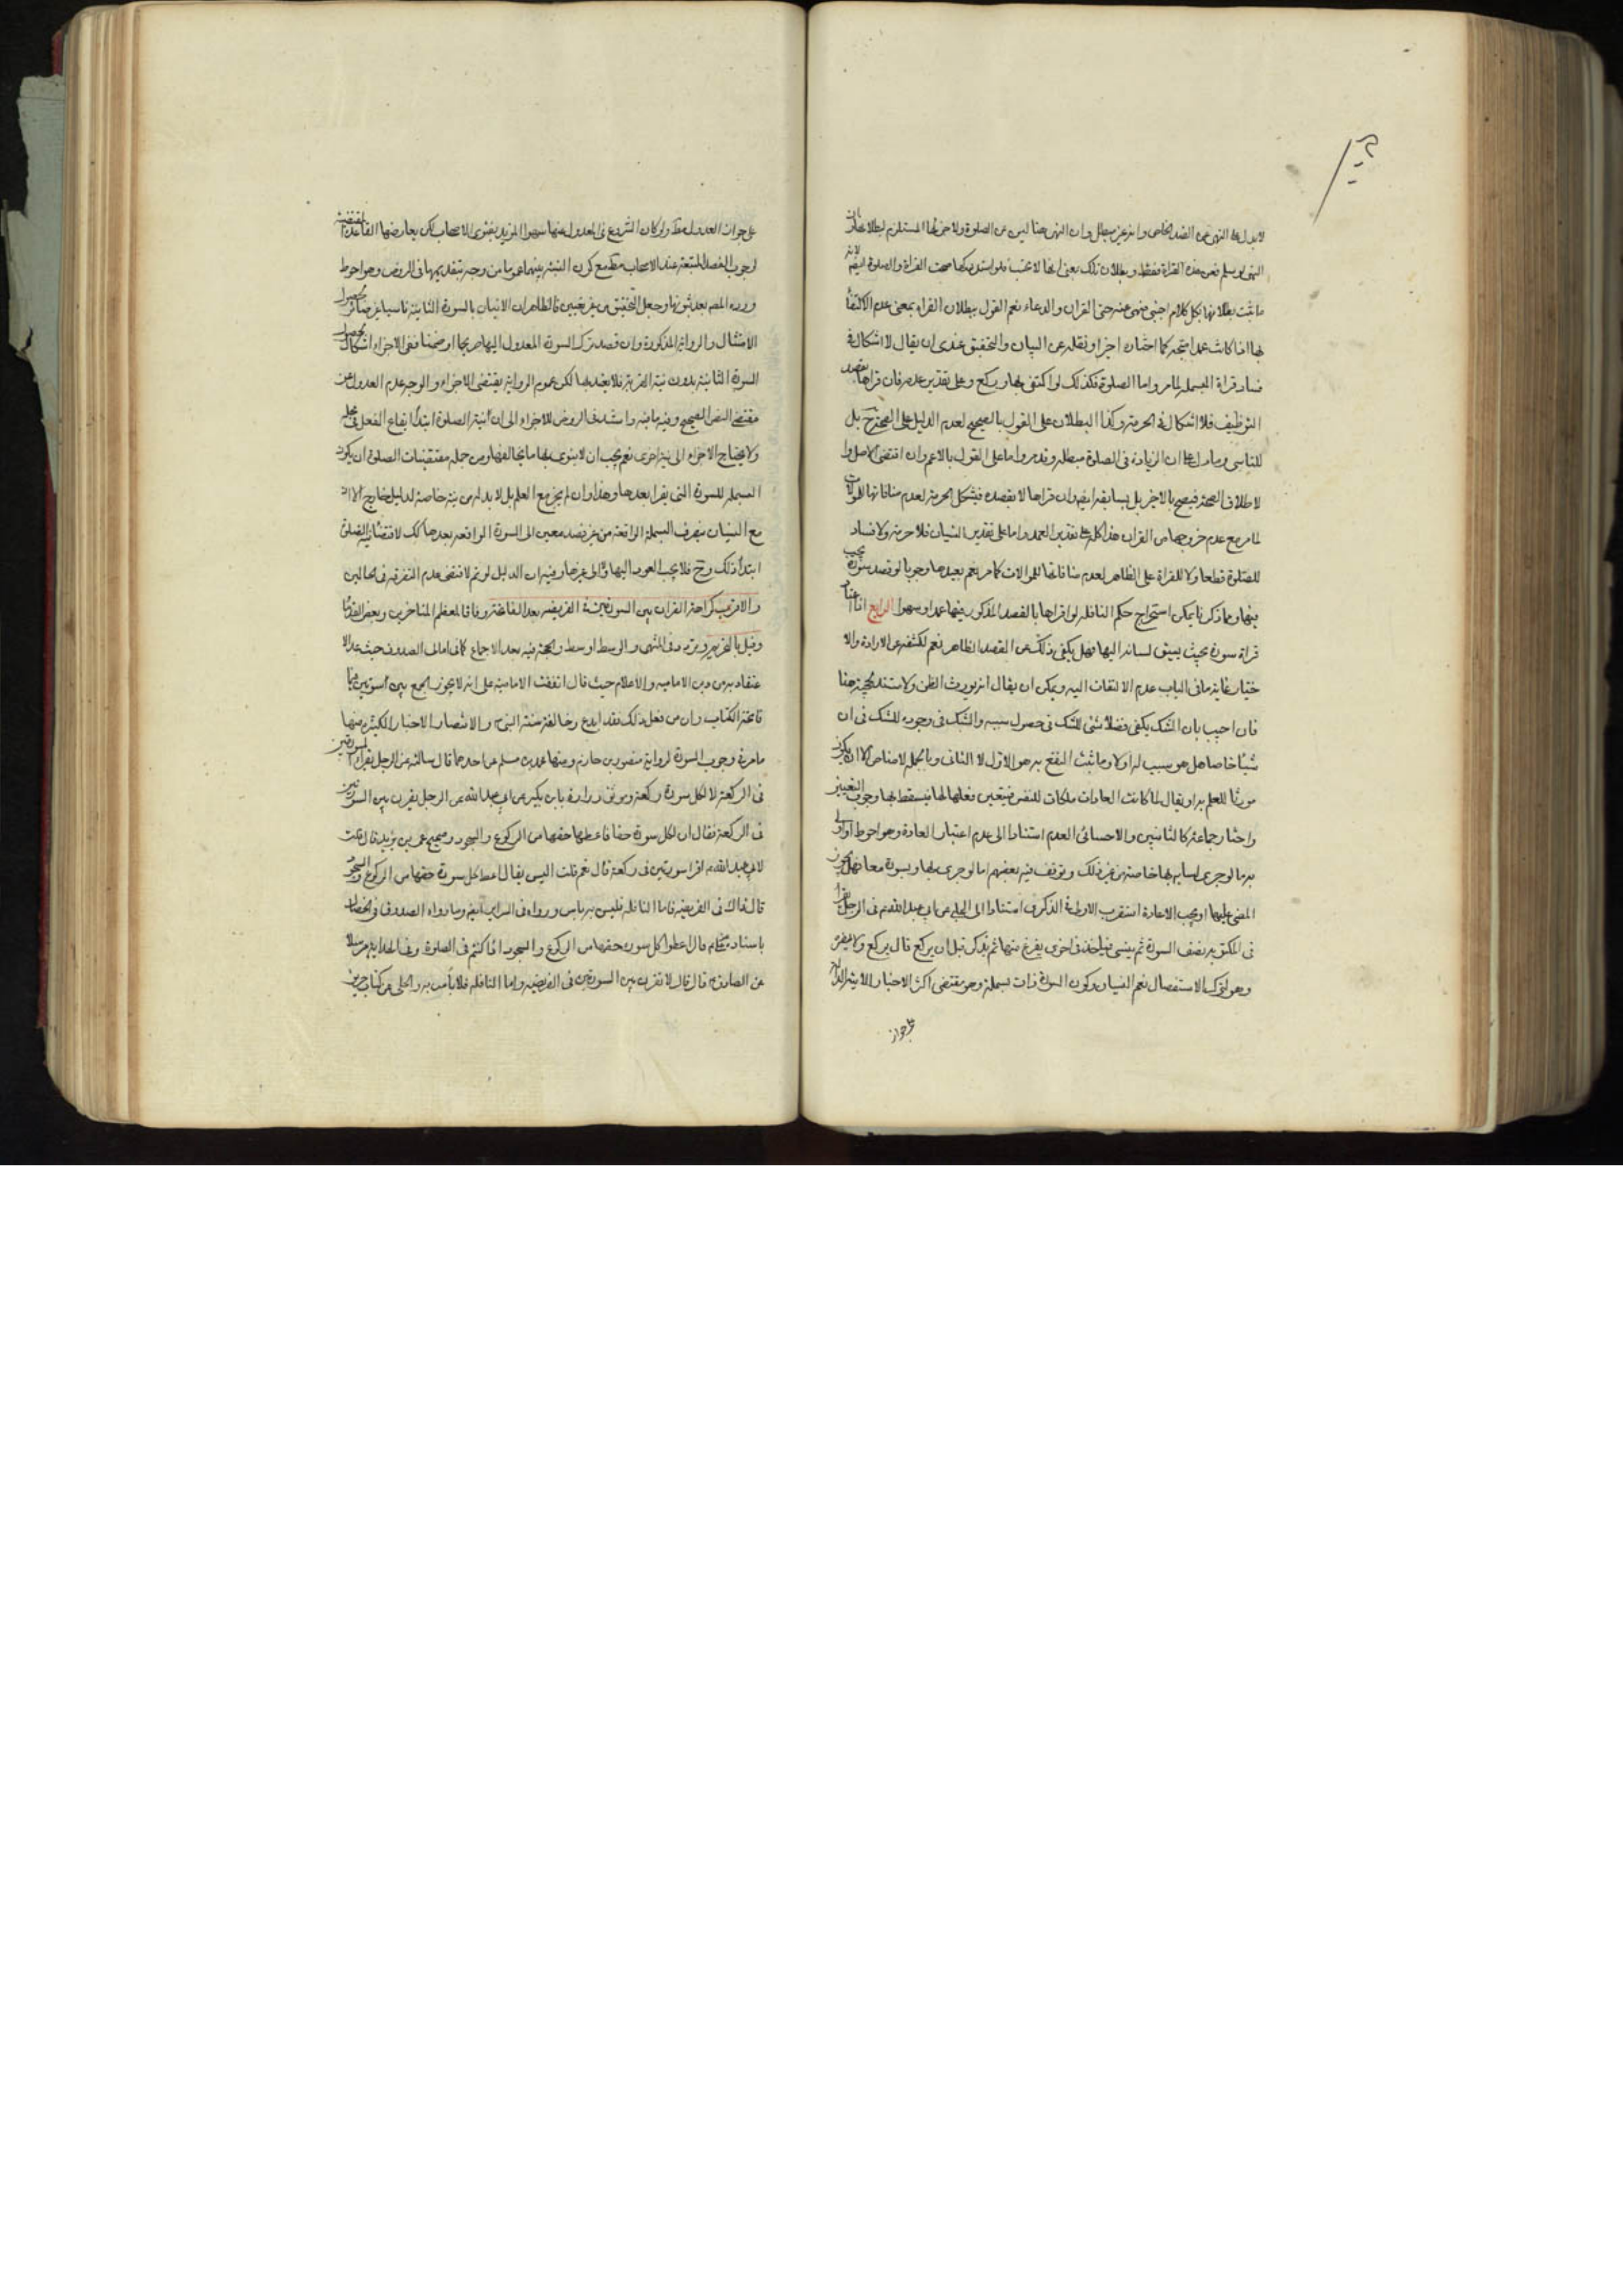 لا يدل على النهى عن الضد الخاص وانه غير مبطل وان النهى هنا ليس عن الصلوة ولا جزئها المستلزم لبطلانها لان
النهى لو سلم فعن هذه القراة فقط وبطلان تلك بمعنى انها لا تحتسب فلو استدركها صحت القراة والصلوة لانه
ما ثبت بطلانها بكل كلام اجنبى منهى عنه حتى القران والدعاء نعم القول ببطلان القراة بمعنى عدم الاكتفا
بها اذا كانت عمدا متجه كما اختاره اخيرا ونقله عن البيان والتحقيق عندى ان يقال لا اشكال فى
فساد قراة البسملة لما مر واما الصلوة فكذلك لو اكتفى بها وركع وعلى تقدير عدمه فان قراها بقصد
التوظيف فلا اشكال فى الحرمة وكذا البطلان على القول بالصحيح لعدم الدليل على الصحة ح بل
للتاسى وما دل على ان الزيادة فى الصلوة مبطلة وقد مر واما على القول بالاعم وان اقتضى الاصل وا
لاطلاق الصحة فيصح بالاخير بل بسابقه ايضا وان قراها لا بقصده فيشكل الحرمة لعدم منافاتها للموالات
لما مر مع عدم خروجها من القران هذا كله على تقدير العمد واما على تقدير النسيان فلا حرمة ولا فساد
للصلوة قطعا ولا للقراة على الظاهر لعدم منافاتها للموالات كما مر نعم يعيدها وجوبا لو قصد سورة يجب
فيها ومما ذكرنا يمكن استخراج حكم النافلة لو اقراها بالقصد المذكور فيها عمدا وسهوا الرابع اذا اعتاد
قراة سورة بحيث يسبق لسانه اليها فهل يكفى ذلك عن القصد الظاهر نعم لكشفه عن الارادة والا
ختيار غاية ما فى الباب عدم الالتفات اليه ويمكن ان يقال انه يورث الظن ولا مستند لحجيته هنا
فان اجيب بان الشك يكفى فضلا شئ للشك فى حصول سببه والشك فى وجوده للشك فى ان
شيئا خاصا هل هو سبب له اولا وما ثبت القنع به هو الاول لا الثانى وبالجملة لا مناص الا ان يكون
مورثا للعلم به او يقال لما كانت العادات ملكات للنفس فيتعين فعلها لها فيسقط بها وجوب التعيين
واختار جماعة كالشاميين والاحسائى العدم استنادا الى عدم اعتبار العادة وهو احوط اولى
بنه ما لو جرى لسانه بها خاصة من غير ذلك وتوقف فيه بعضهم اما لو جرى بها وبسورة معا فهل يجوز
المضى عليها او يجب الاعادة استقرب الاول فى الذكرى استنادا الى الحلبى عن ابى عبد الله ع فى الرجل يقرا
فى المكتوبة نصف السورة ثم ينسى فياخذ فى اخرى يفرغ منها ثم يذكر قبل ان يركع قال يركع ولا يضره
وهو لترك الاستفصال نعم النسيان وكون السورة ذات بسملة وهو مقتضى اكثر الاخبار الاتية الدالة
على جواز
على جواز العدول مط ولو كان الشروع فى المعدول عنها سهوا المؤيد بفتوى الاصحاب لكن يعارضها القاعدة المقتضية
لوجوب القصد المتبعة عند الاصحاب مط مع كون النسبة بينهما عموما من وجه بتقديمها فى الروض وهو احوط
ورده المص بعد ثبوتها وجعل التحقيق من غير تعيين فالظاهر ان الاتيان بالسورة الثانية ناسيا غير ضائر لحصول
الامتثال والرواية المذكورة وان قصد ترك السورة المعدول اليها صريحا او ضمنا ففى الاجزاء اشكال لحصول
السورة الثانية بدون نية القربة فلا يعتد بها لكن عموم الرواية يقتضى الاجزاء والوجه عدم العدول عن
مقتضى النص الصحيح وفيه ما فيه واستند فى الروض للاجزاء الى ان نية الصلوة ابتدأ ايقاع الفعل فى محله
ولا يحتاج الاجزاء الى نية اخرى نعم يجب ان لا ينوى بها ما يخالفها ومن جملة مقتضيات الصلوة ان يكون
البسملة للسورة التى يقرا بعدها وهذا وان لم يجز مع العلم بل لا بد له من نية خاصة لدليل خارج الا ان
مع النسيان يصرف البسملة الواقعة من غير قصد معين الى السورة الواقعة بعدها كك لاقتضاء نية الصلوة
ابتدأ ذلك وح فلا يجب العود اليها ولا الى غيرها وفيه ان الدليل لو تم لاقتضى عدم التفرقة فى الحالين
والاقرب كراهة القران بين السورتين فى الفريضة بعد الفاتحة وفاقا لمعظم المتاخرين وبعض القدما
وقيل بالتحريم وتردد فى المنتهى والوسط اوسط والحجة فيه بعد الاجماع كما فى امالى الصدوق حيث عد الا
عتقاد به من دين الامامية والاعلام حيث قال اتفقت الامامية على انه لا يجوز الجمع بين سورتين مما
فاتحة الكتاب وان من فعل ذلك فقد ابدع وخالف سنة النبى ص والانتصار الاخبار الكثيرة منها
ما مر فى وجوب السورة لرواية منصور بن حازم ومنها محمد بن مسلم عن احدهما قال سالته عن الرجل يقرا السورتين
فى الركعة لا لكل سورة ركعة وموثق زرارة بابن بكير عن ابى عبد الله عن الرجل يقرن بين السورتين
فى الركعة فقال ان لكل سورة حقا فاعطها حقها من الركوع والسجود وصحيح عمر بن يزيد قال قلت
لابى عبد الله ع اقرا سورتين فى ركعة قال نعم قلت اليس يقال اعط كل سورة حقها من الركوع والسجود
قال ذاك فى الفريضة فاما النافلة فليس به باس ورواه فى السراير ايضا وما رواه الصدوق فى الخصال
باسناده قال اعطوا كل سورة حقها من الركوع والسجود اذا كنتم فى الصلوة وفى الهداية مرسلا
عن الصادق ع قال قال لا تقرن بين السورتين فى الفريضة واما النافلة فلا بأس به والحلى عن كتاب حريز